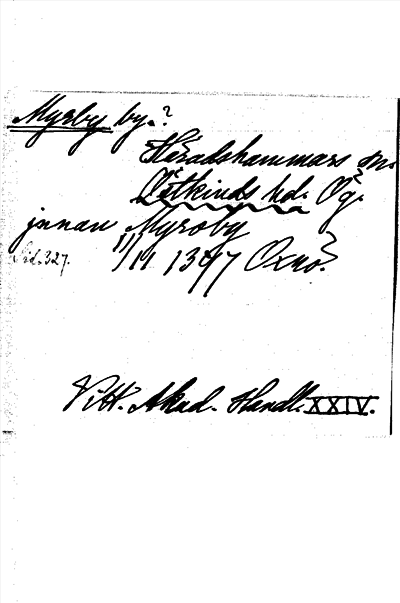 Myrby by.?
Häradshammars sn.
Östkinds hd. Ög.
jnnan Myroby
Sid. 327.
11/11 1347 Oxnö?
Vitt. Akad. Handl. XXIV.